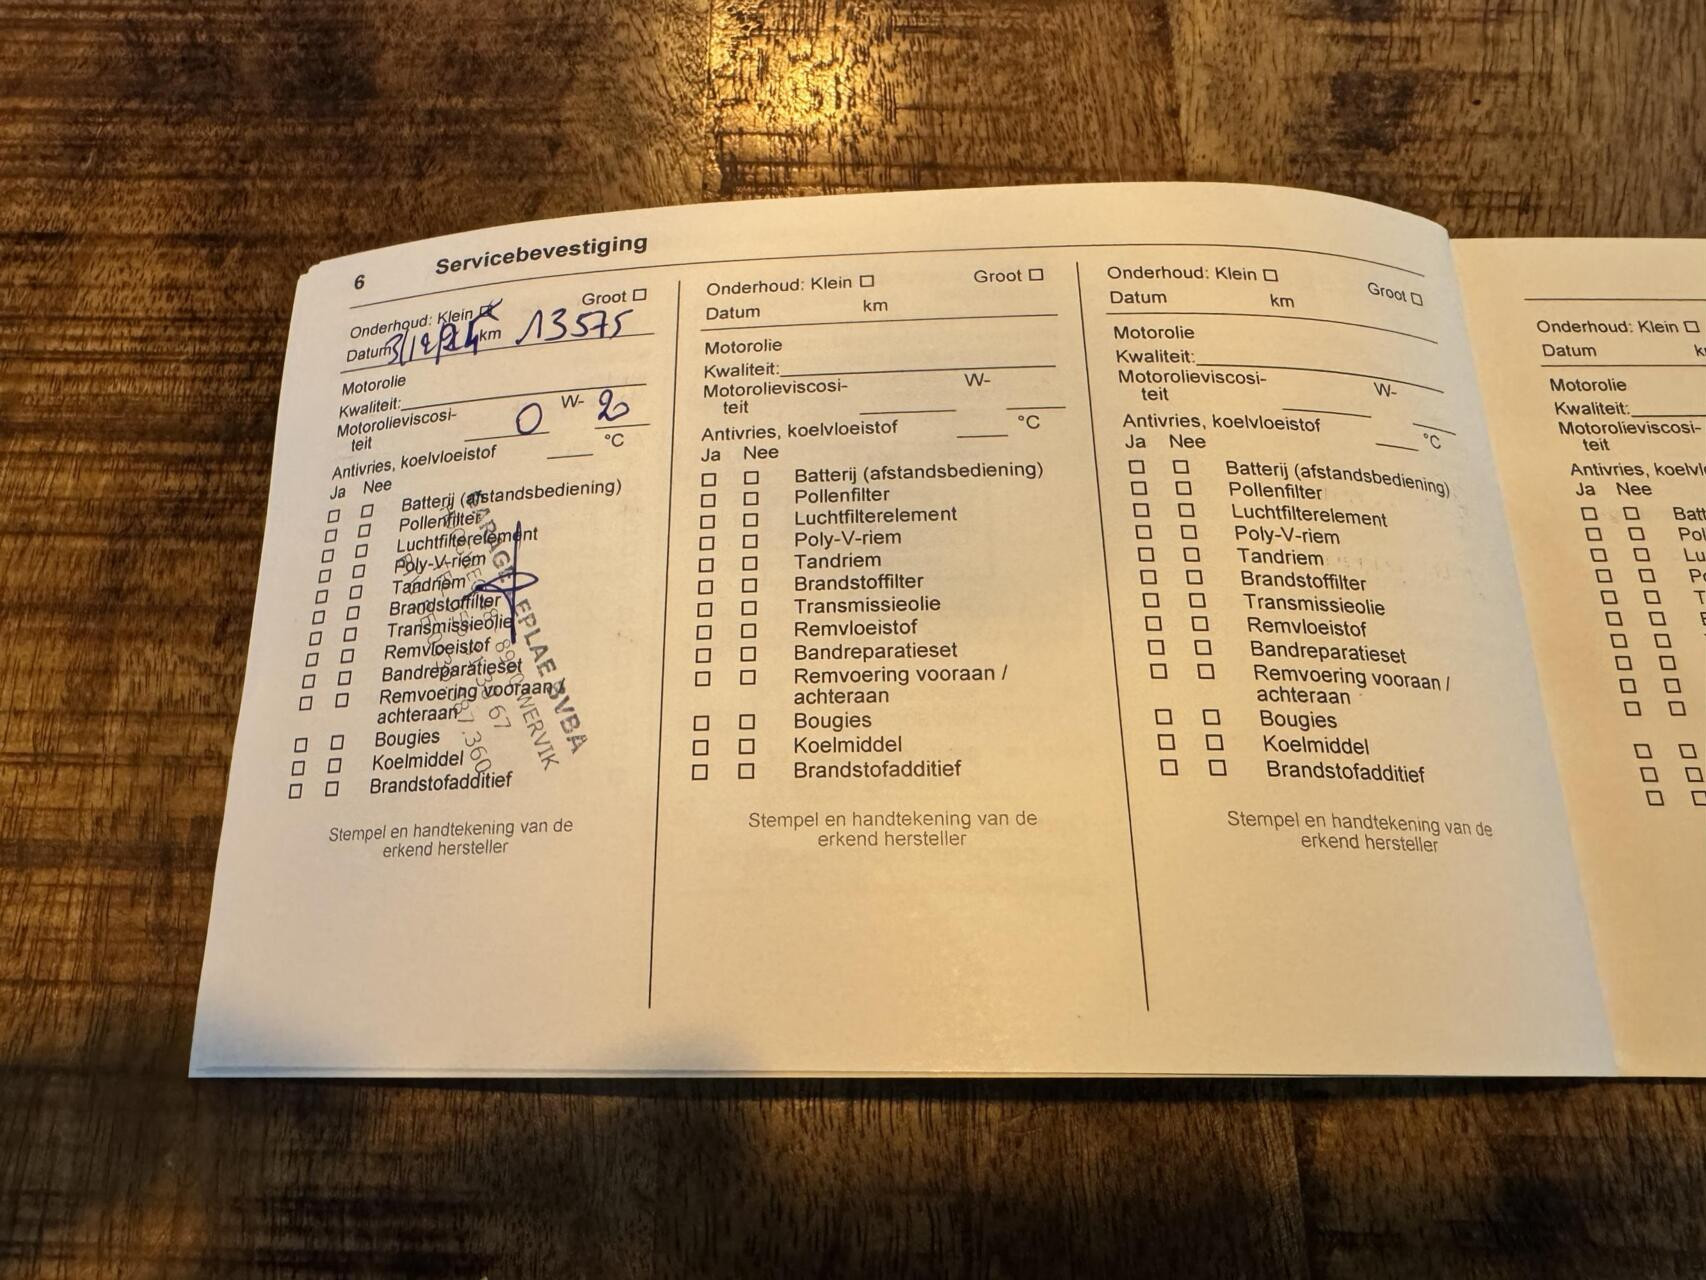 6 Servicebevestiging
Onderhoud: Klein Groot
Datum km 13575
Motorolie
Kwaliteit:
Motorolieviscosi-
teit 0 W- 20
Antivries, koelvloeistof °C
Ja Nee
Batterij (afstandsbediening)
Pollenfilter
Luchtfilterelement
Poly-V-riem
Tandriem
Brandstoffilter
Transmissieolie
Remvloeistof
Bandreparatieset
Remvoering vooraan /
achteraan
Bougies
Koelmiddel
Brandstofadditief
BVBA
WERVIK
Stempel en handtekening van de
erkend hersteller
Onderhoud: Klein Groot
Datum km
Motorolie
Kwaliteit:
Motorolieviscosi-
teit W-
Antivries, koelvloeistof °C
Ja Nee
Batterij (afstandsbediening)
Pollenfilter
Luchtfilterelement
Poly-V-riem
Tandriem
Brandstoffilter
Transmissieolie
Remvloeistof
Bandreparatieset
Remvoering vooraan /
achteraan
Bougies
Koelmiddel
Brandstofadditief
Stempel en handtekening van de
erkend hersteller
Onderhoud: Klein Groot
Datum km
Motorolie
Kwaliteit:
Motorolieviscosi-
teit W-
Antivries, koelvloeistof °C
Ja Nee
Batterij (afstandsbediening)
Pollenfilter
Luchtfilterelement
Poly-V-riem
Tandriem
Brandstoffilter
Transmissieolie
Remvloeistof
Bandreparatieset
Remvoering vooraan /
achteraan
Bougies
Koelmiddel
Brandstofadditief
Stempel en handtekening van de
erkend hersteller
Onderhoud: Klein
Datum
Motorolie
Kwaliteit:
Motorolieviscosi-
teit
Antivries,
Ja Nee